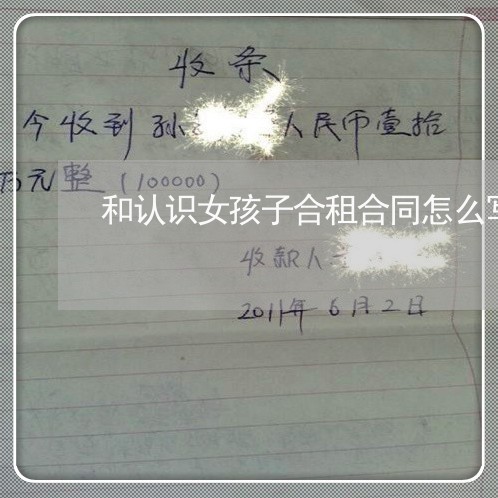 收条
今收到孙 人民币壹拾
万元整(100000)
和认识女孩子合租合同怎么写
收款人
2011年6月2日